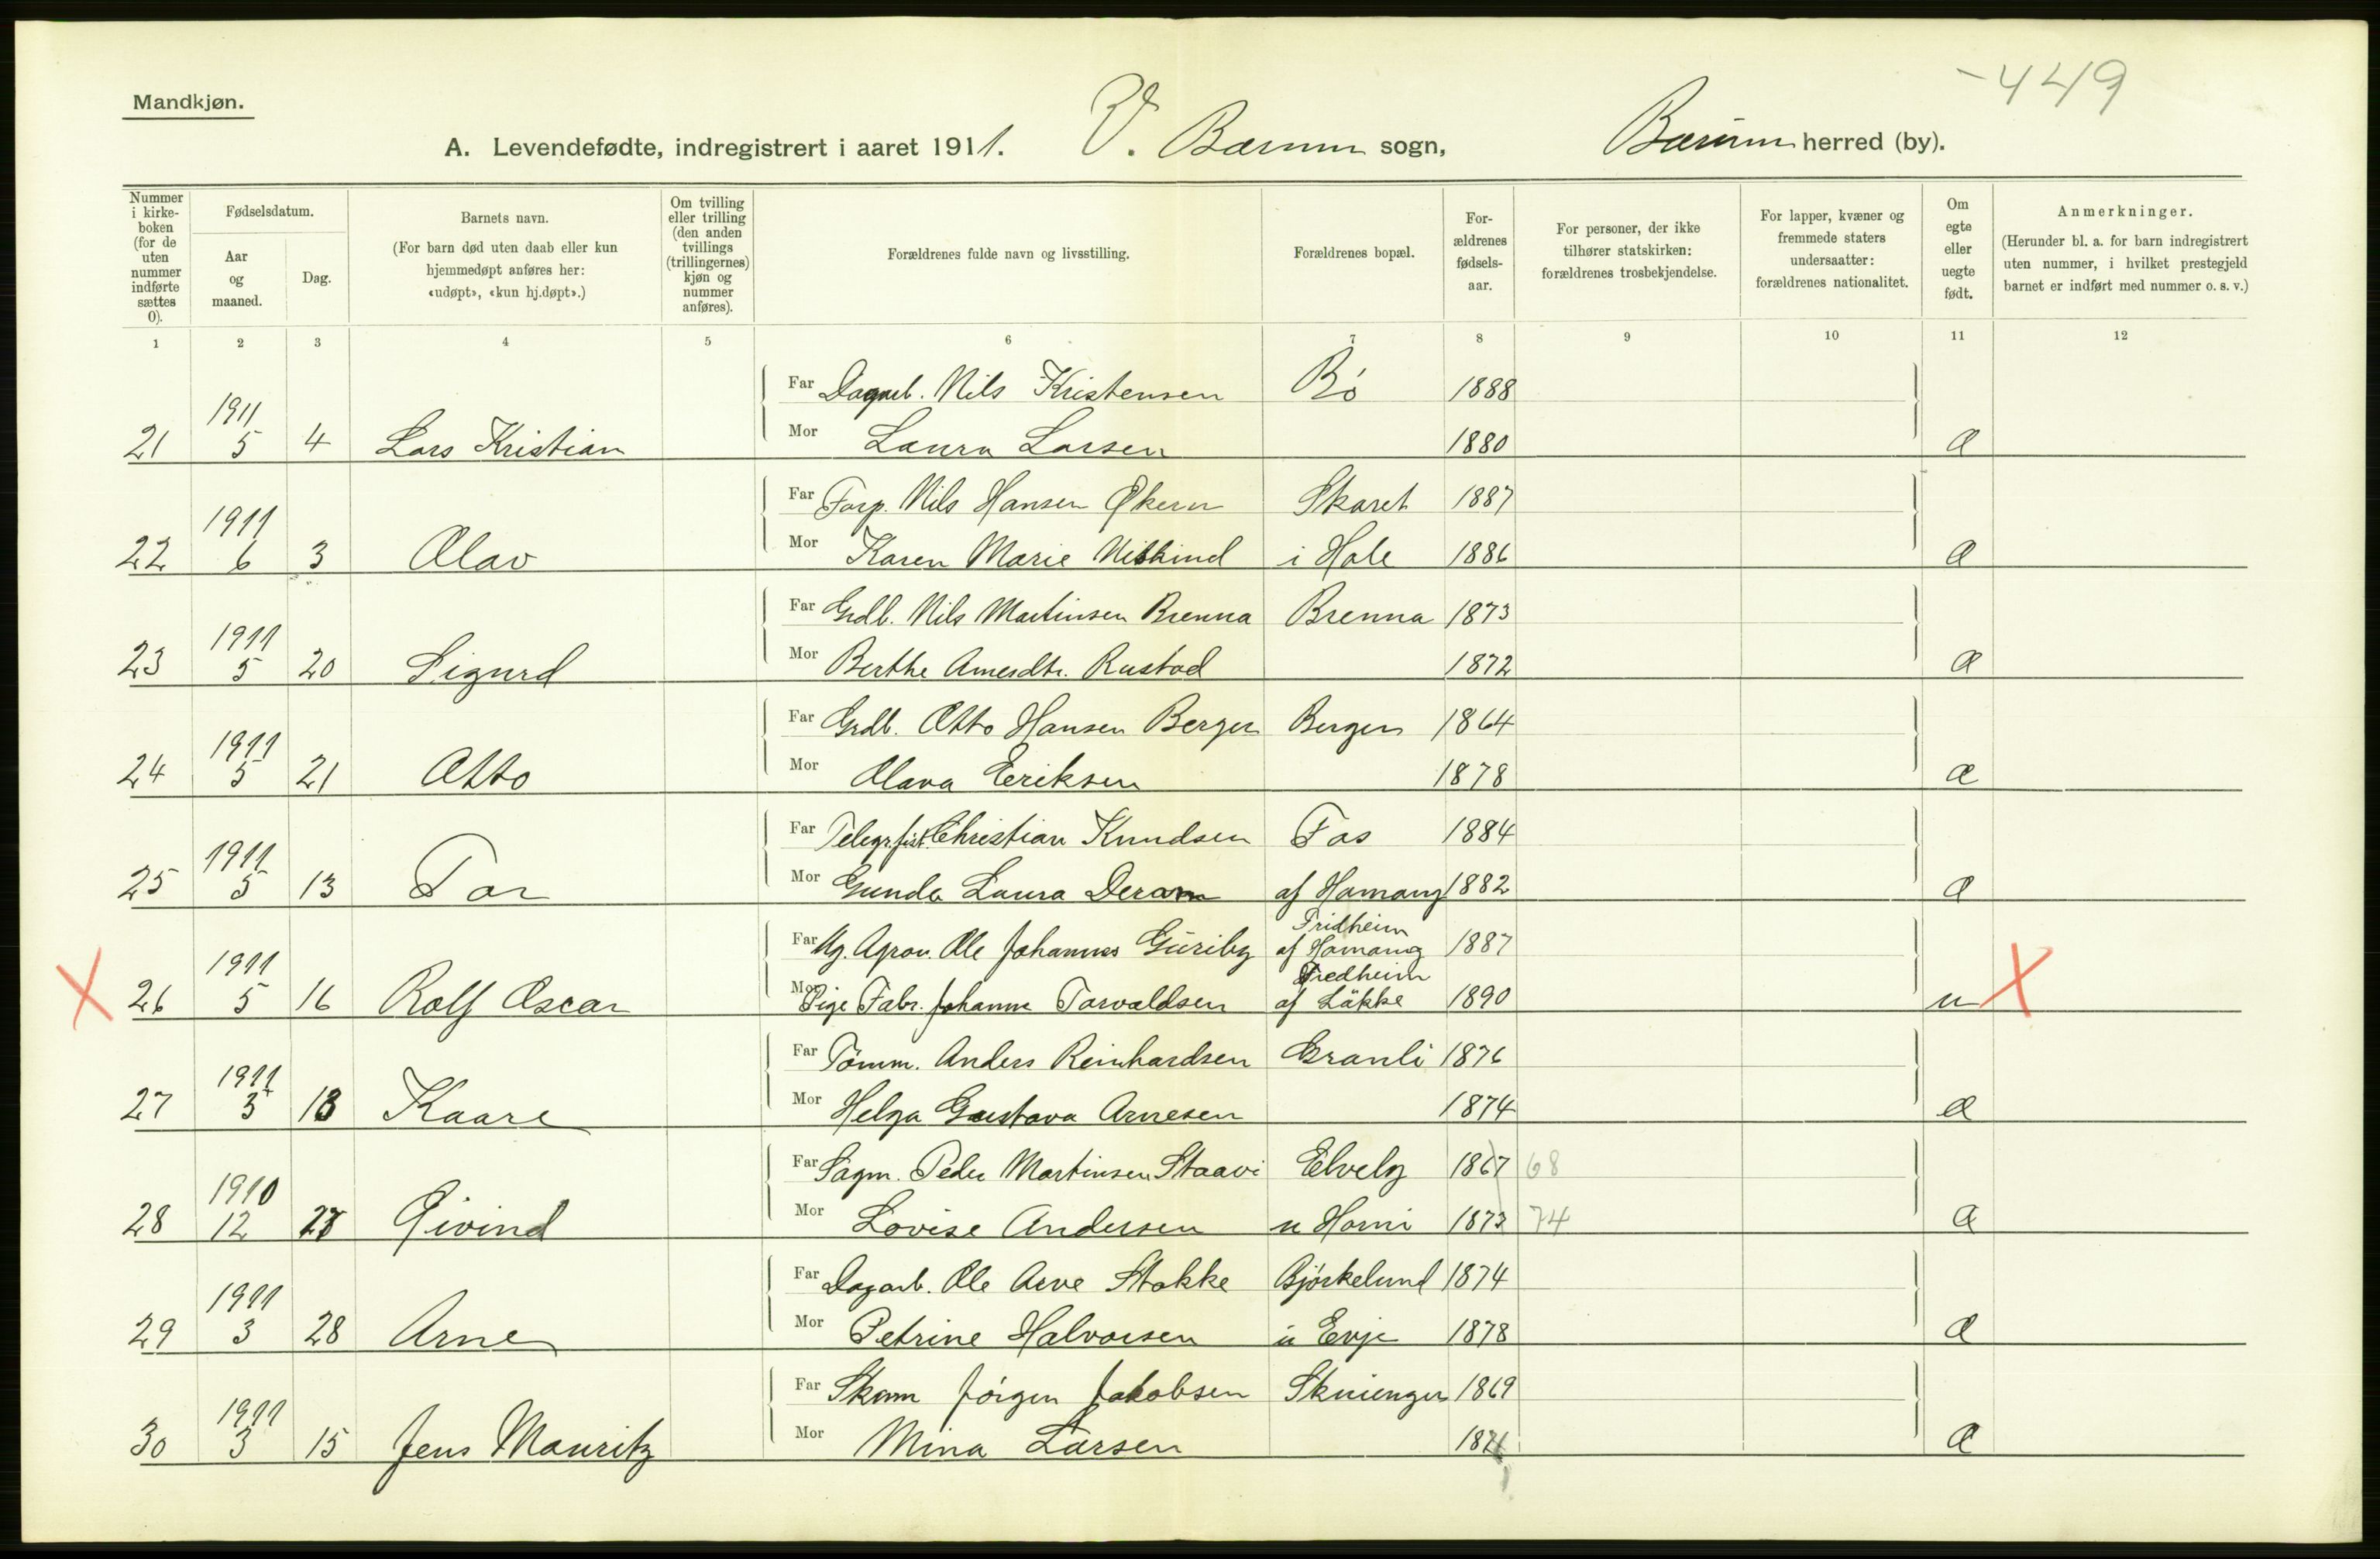 -449
Mandkjøn.
A. Levendefødte, indregistrert i aaret 1911. V. Bærum sogn, Bærum herred (by).
Nummer i kirke-boken (for de uten nummer indførte sættes 0).
Fødselsdatum.
Aar og maaned.
Dag.
Barnets navn.
(For barn død uten daab eller kun hjemmedøpt anføres her: «udøpt», «kun hj.døpt».)
Om tvilling eller trilling (den anden tvillings (trillingernes) kjøn og nummer anføres).
Forældrenes fulde navn og livsstilling.
Forældrenes bopæl.
For-ældrenes fødsels-aar.
For personer, der ikke tilhører statskirken: forældrenes trosbekjendelse.
For lapper, kvæner og fremmede staters undersaatter: forældrenes nationalitet.
Om egte eller uegte født.
Anmerkninger.
(Herunder bl. a. for barn indregistrert uten nummer, i hvilket prestegjeld barnet er indført med nummer o. s. v.)
1 2 3 4 5 6 7 8 9 10 11 12
Far Dagarb. Nils Kristensen Bö 1888
21 1911 5 4 Lars Kristian Mor Laura Larsen 1880 Æ
Far Forp. Nils Hansen Økern Skaret 1887
22 1911 6 3 Olav Mor Karen Marie i Hole 1886 Æ
Far Grdb. Nils Martinsen Brenna Brenna 1873
23 1911 5 20 Sigurd Mor Berthe Amesdtr. Rustad 1872 Æ
Far Grdb. Otto Hansen Berger Berger 1864
24 1911 5 21 Otto Mor Olava Eriksen 1878 Æ
Far Telegr.fist. Christian Knudsen Fos 1884
25 1911 5 13 Tor Mor Gunda Laura af Hamang 1882 Æ
Far Ug. Agron. Ole Johannes Güriby Fridheim af Hamang 1887
X 26 1911 5 16 Rolf Oscar Mor Pige Fabr. Johanne Torvaldsen Fredheim af Läkke 1890 u X
Far Tömm. Anders Reinhardsen Granli 1876
27 1911 5 13 Kaare Mor Helga Gustava Arnesen 1874 Æ
Far Sagm. Peder Martinsen Staavi Elvely 1867 68
28 1910 12 27 Øivind Mor Lovise Andersen u Horni 1873 74 Æ
Far Dagarb. Ole Arve Stokke Björkelund 1874
29 1911 3 28 Arne Mor Petrine Halvorsen u Evje 1878 Æ
Far Skom Jörgen Jakobsen Skuienger 1869
30 1911 3 15 Jens Mauritz Mor Mina Larsen Æ